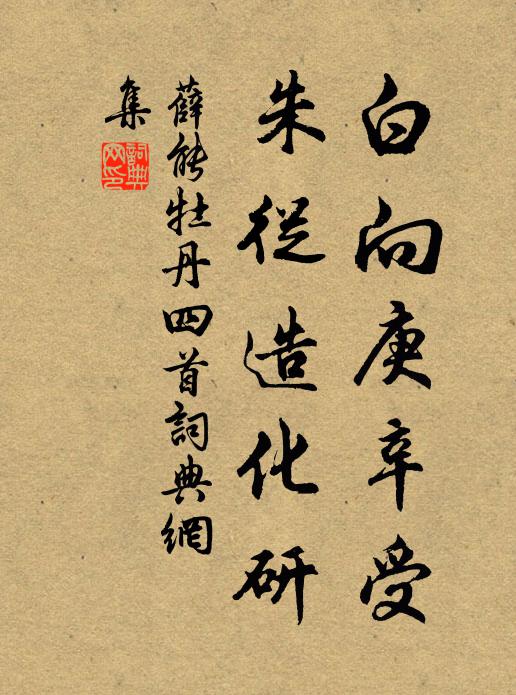 白向庚辛受
朱從造化研
薛能牡丹四首詞典網
集
詞典網印